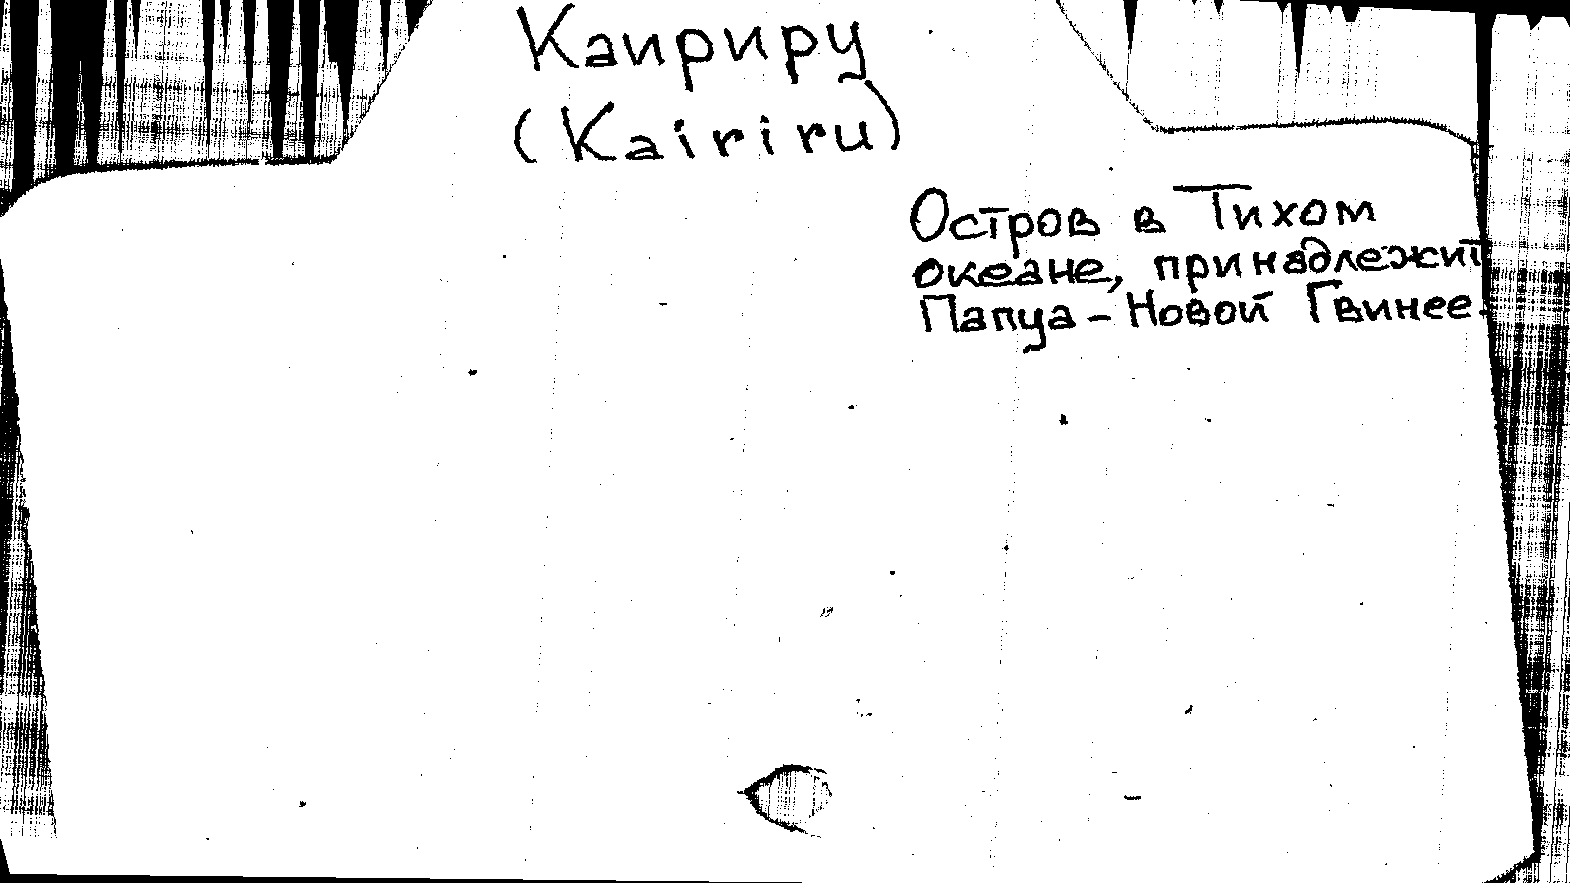 Каириру
(Kairiru)
Остров в Тихом
океане, принадлежит
Папуа-Новой Гвинее.